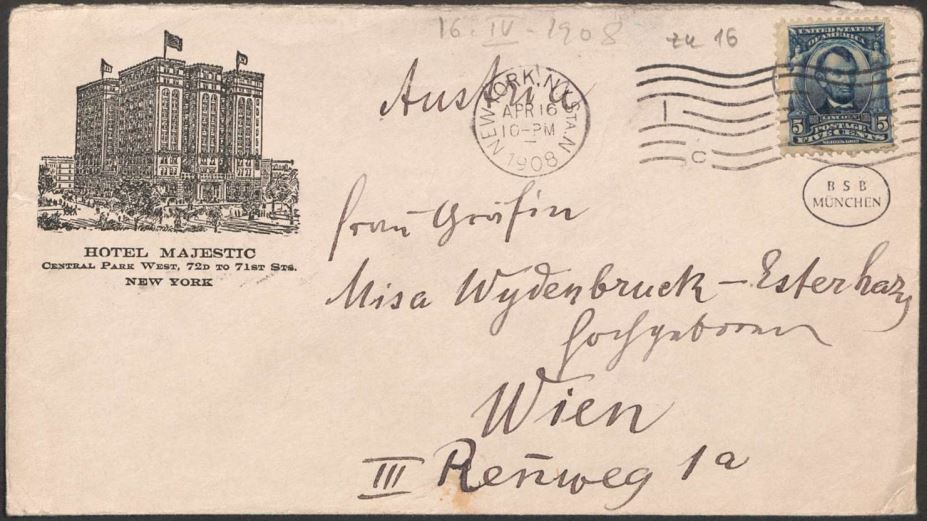 16. IV - 1908
zu 16
HOTEL MAJESTIC
CENTRAL PARK WEST, 72D TO 71ST STS.
NEW YORK
Austria
NEW YORK, N.Y. STA. N
APR 16
10-PM
1908
1
C
UNITED STATES
OF AMERICA
LINCOLN
5 POSTAGE 5
FIVE CENTS
B S B
MÜNCHEN
Frau Gräfin
Misa Wydenbruck - Esterhazy
Hochgeboren
Wien
III Reñweg 1a